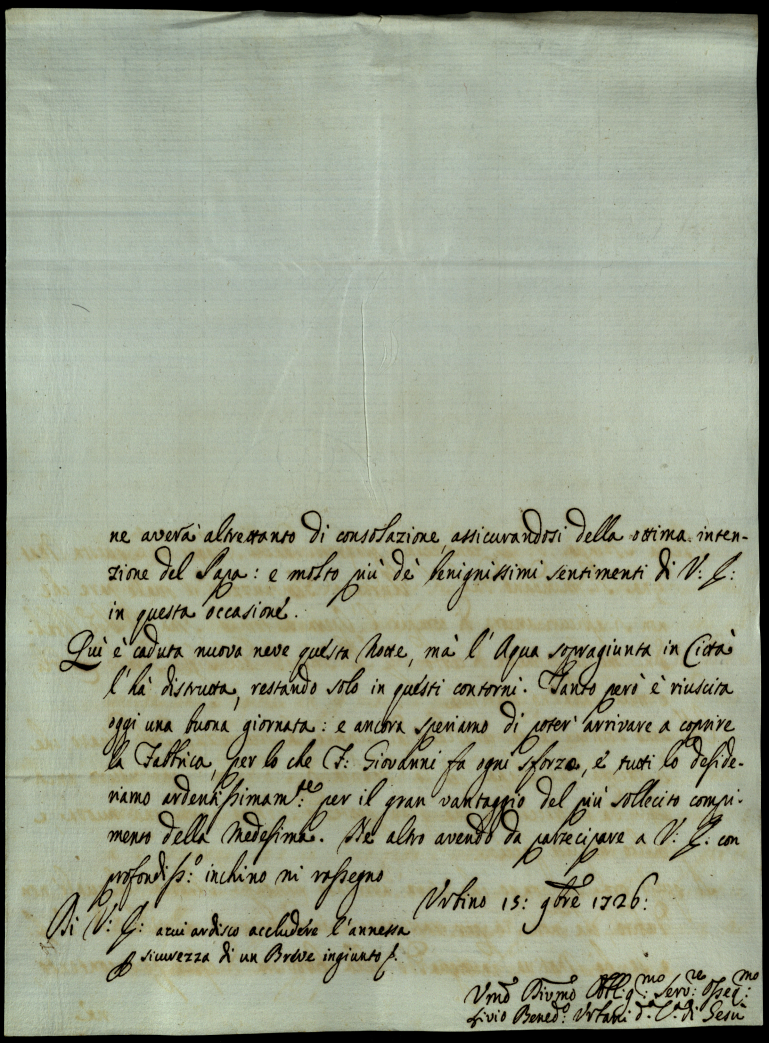 ne averà altrettanto di consolazione, assicurandosi della ottima inten-
zione del Papa: e molto più de' benignissimi sentimenti di V: E:
in questa occasione.
Quì è caduta nuova neve questa Notte, mà l'Aqua sopragiunta in Città
l'hà distrutta, restando solo in questi contorni. Tanto però è riuscita
oggi una buona giornata: e ancora speriamo di poter' arrivare a coprire
la Fabbrica, per lo che F: Giovanni fa ogni sforzo, e tutti lo deside-
riamo ardentissimam.te per il gran vantaggio del più sollecito compi-
mento della Medesima. Ne altro avendo da partecipare a V: E: con
profondiss:o inchino mi rassegno
Urbino 15: 9bre 1726:
Di V: E: a cui ardisco accludere l'annessa
sicurezza di un Breve ingiunto
Umo Divmo Obblig:mo Serv:re Osseq:mo
Livio Bened:o Urbani d.a C.a di Gesù